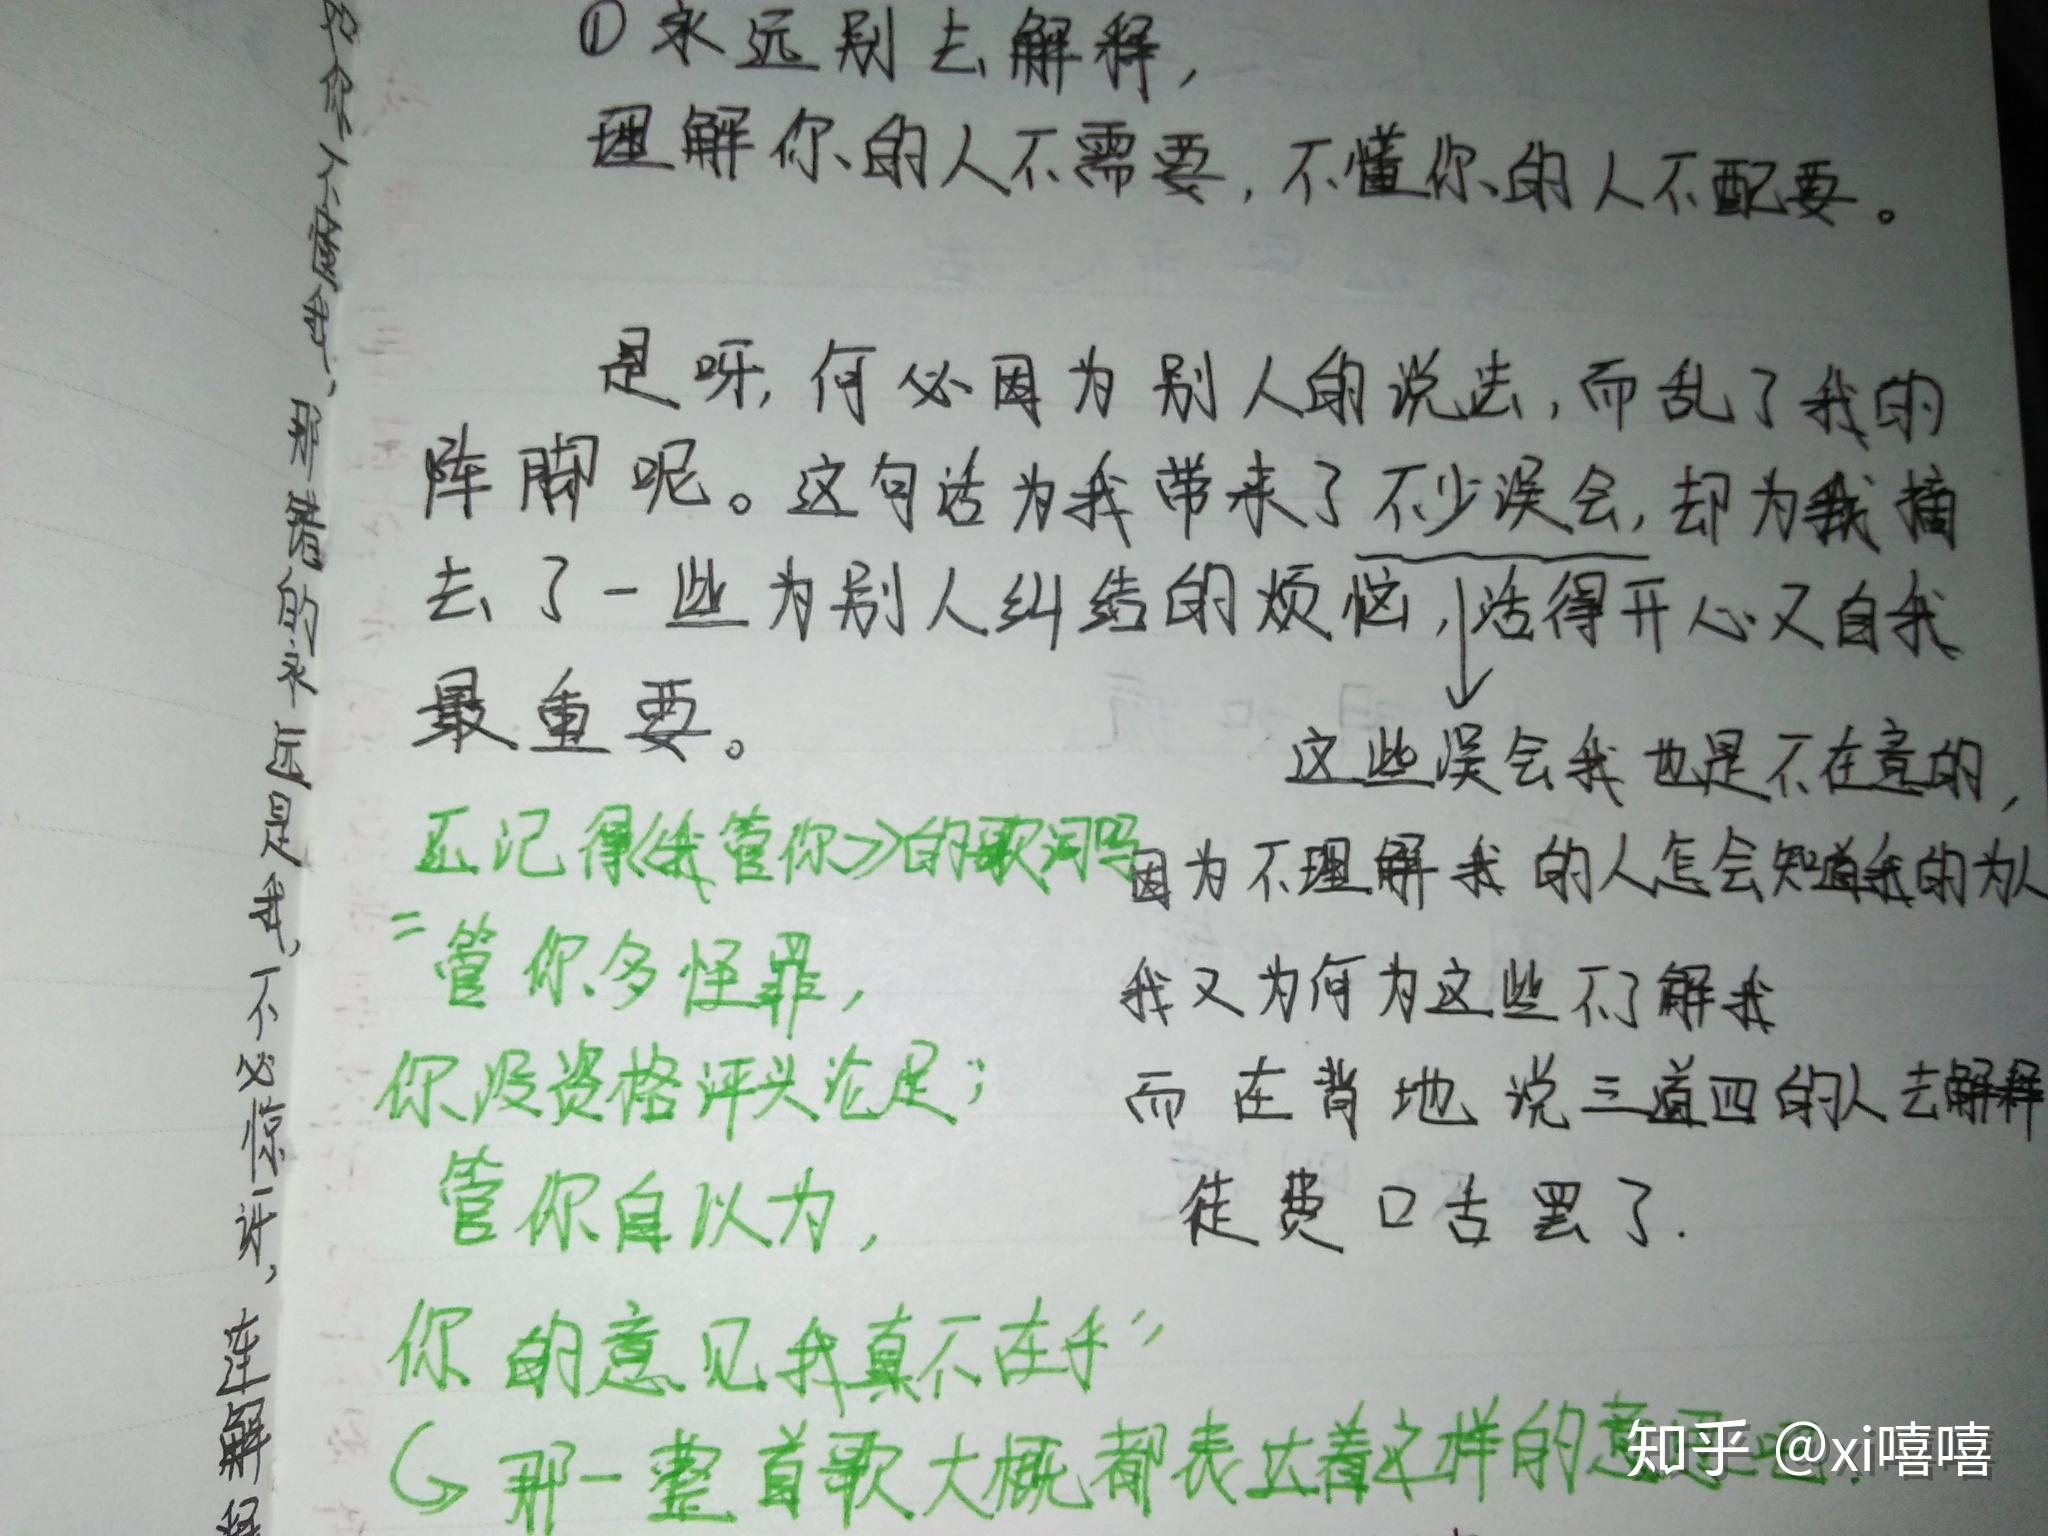 ①永远别去解释,
理解你的人不需要,不懂你的人不配要。
是呀,何必因为别人的说法,而乱了我的
阵脚呢。这句话为我带来了不少误会,却为我摘
去了一些为别人纠结的烦恼,活得开心又自我
最重要。
这些误会我也是不在意的,
因为不理解我的人怎会知道我的为人
我又为何为这些不了解我
而在背地说三道四的人去解释
徒费口舌罢了.
还记得《我管你》的歌词吗
"管你多怪罪,
你没资格评头论足;
管你自以为,
你的意见我真不在乎"
那一整首歌大概都表达着这样的意
你不懂我,那错的永远是我。不必惊讶,连解释
知乎 @xi嘻嘻